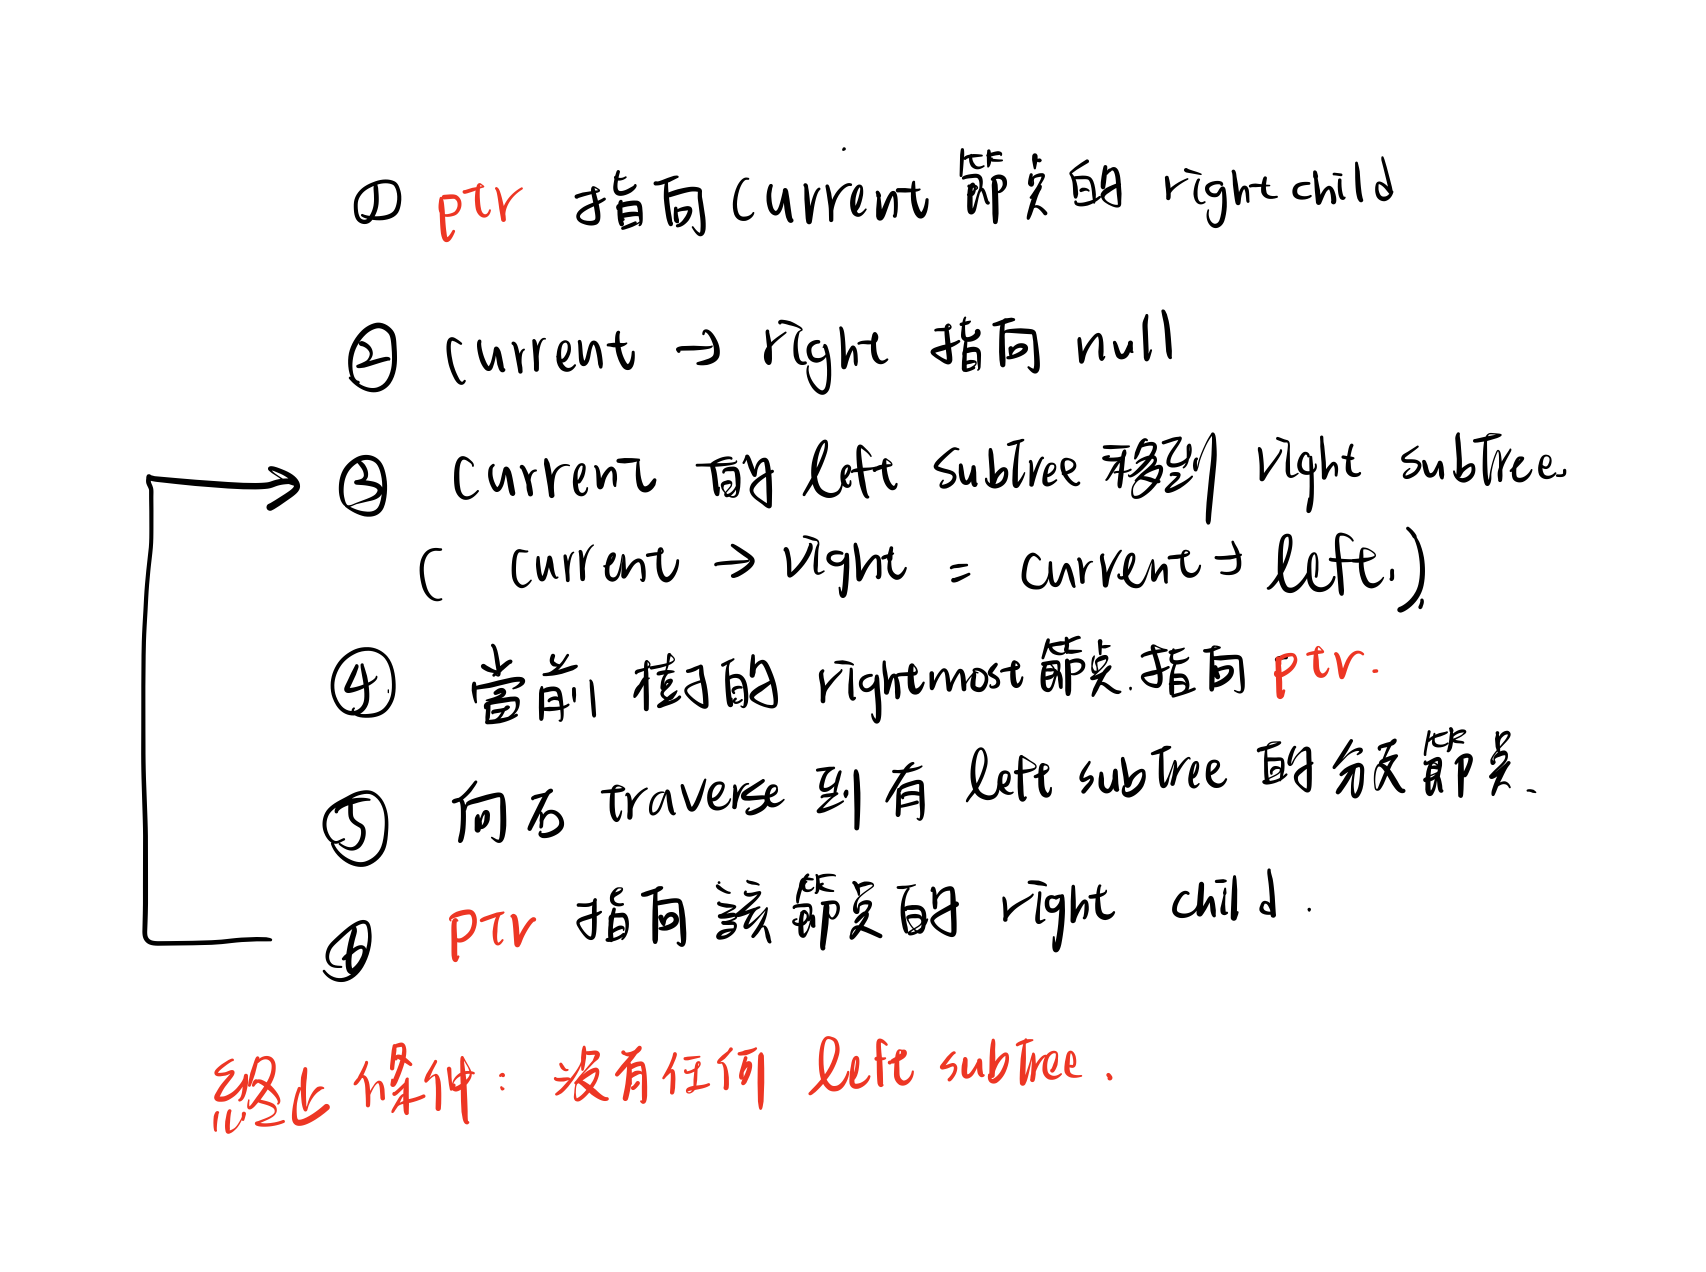 ① ptr 指向 current 節点的 right child
② current → right 指向 null
③ current 的 left subtree 移到 right subtree.
( current → right = current → left. )
④ 當前樹的 rightmost 節点. 指向 ptr.
⑤ 向右 traverse 到有 left subtree 的分支節点.
⑥ ptr 指向該節点的 right child.
終止條件: 沒有任何 left subtree.